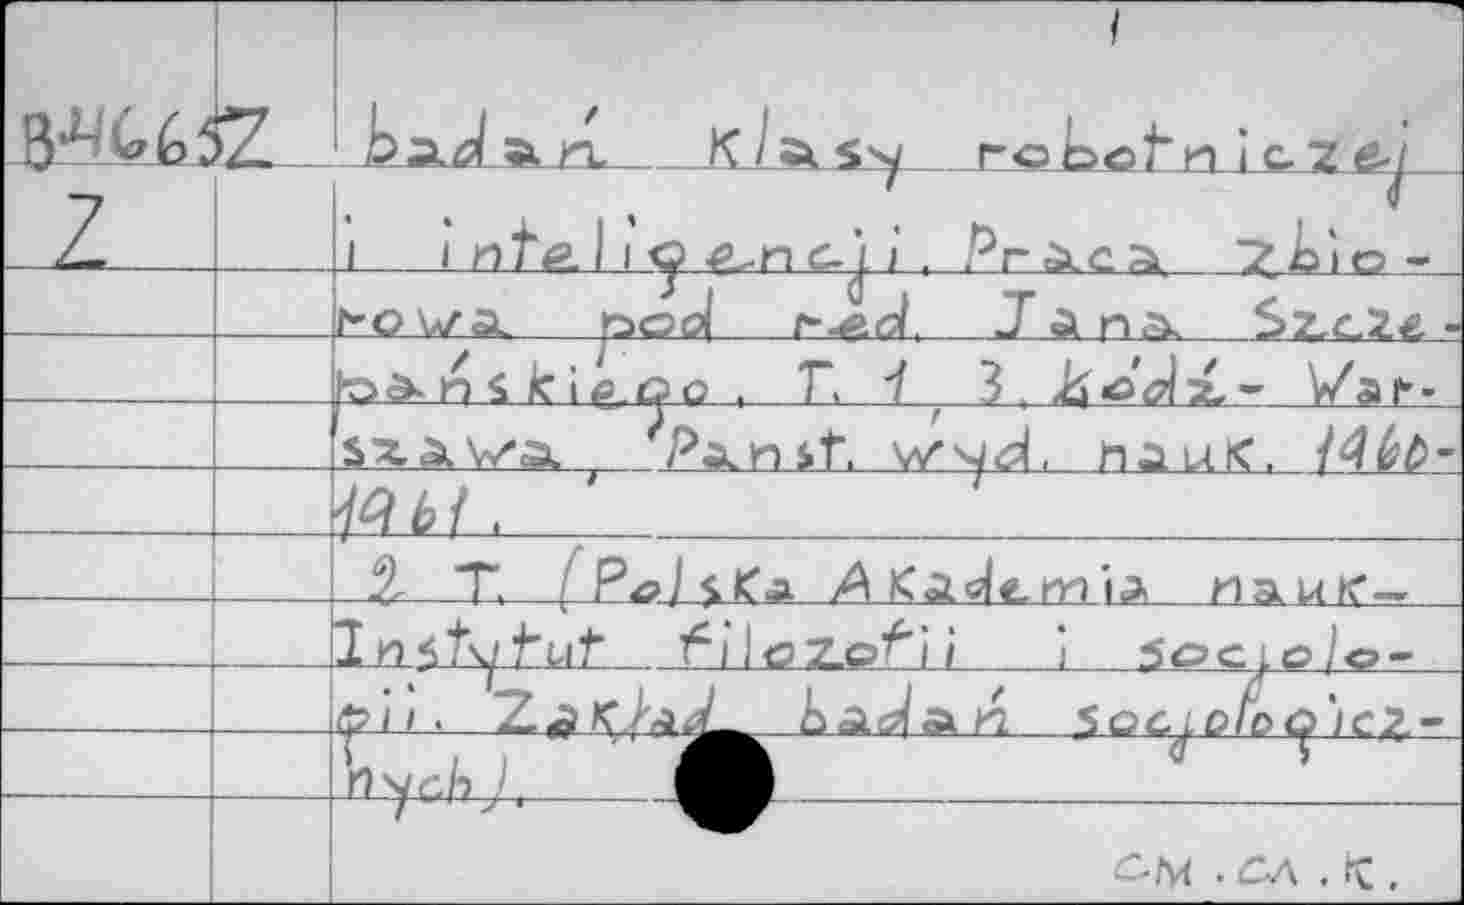 В46652 badań klasy robotniczej
Z i inteligencji. Praca zbio-
rowa pod red. Jana Szcze-
pańskiego, T. 1, 3. Łódź- War-
szawa, Panst. wyd. nauk. 1960-
1961.
2 T. (Polska Akademia nauk-
Instytut filozofii i socjolo-
gii. Zakład badań socjologicz-
nych).
см. сл. к.